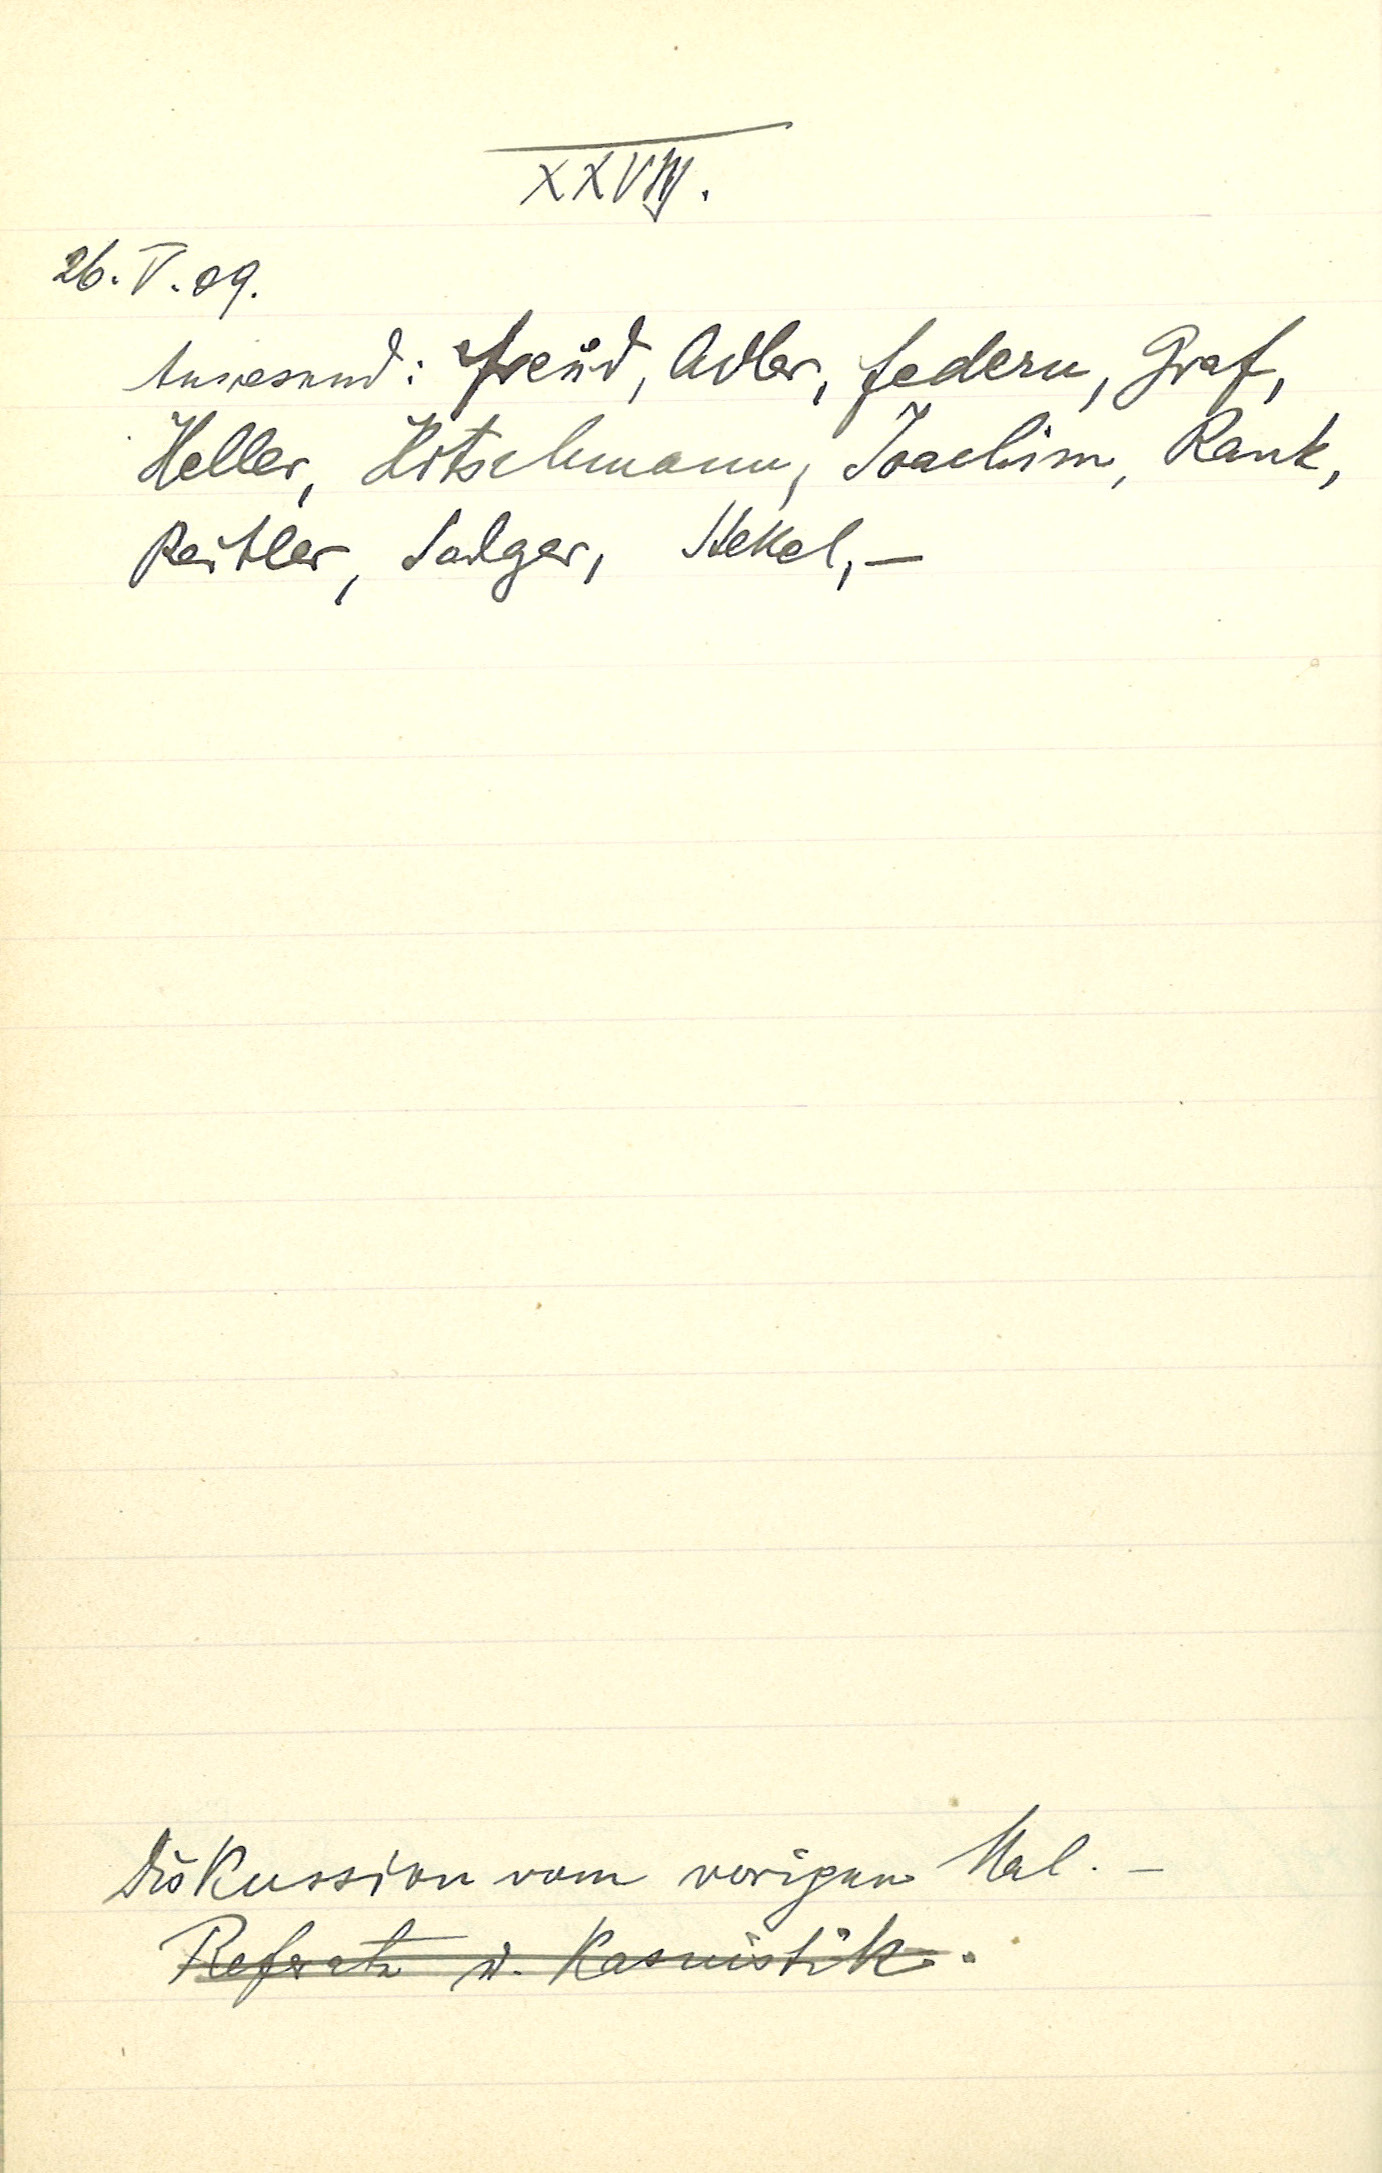 XXVIII.
26. V. 09.
Anwesend: Freud, Adler, Federn, Graf,
Heller, Hitschmann, Joachim, Rank,
Reitler, Sadger, Stekel, –
Diskussion vom vorigen Mal. –
Referate u. Kasuistik.